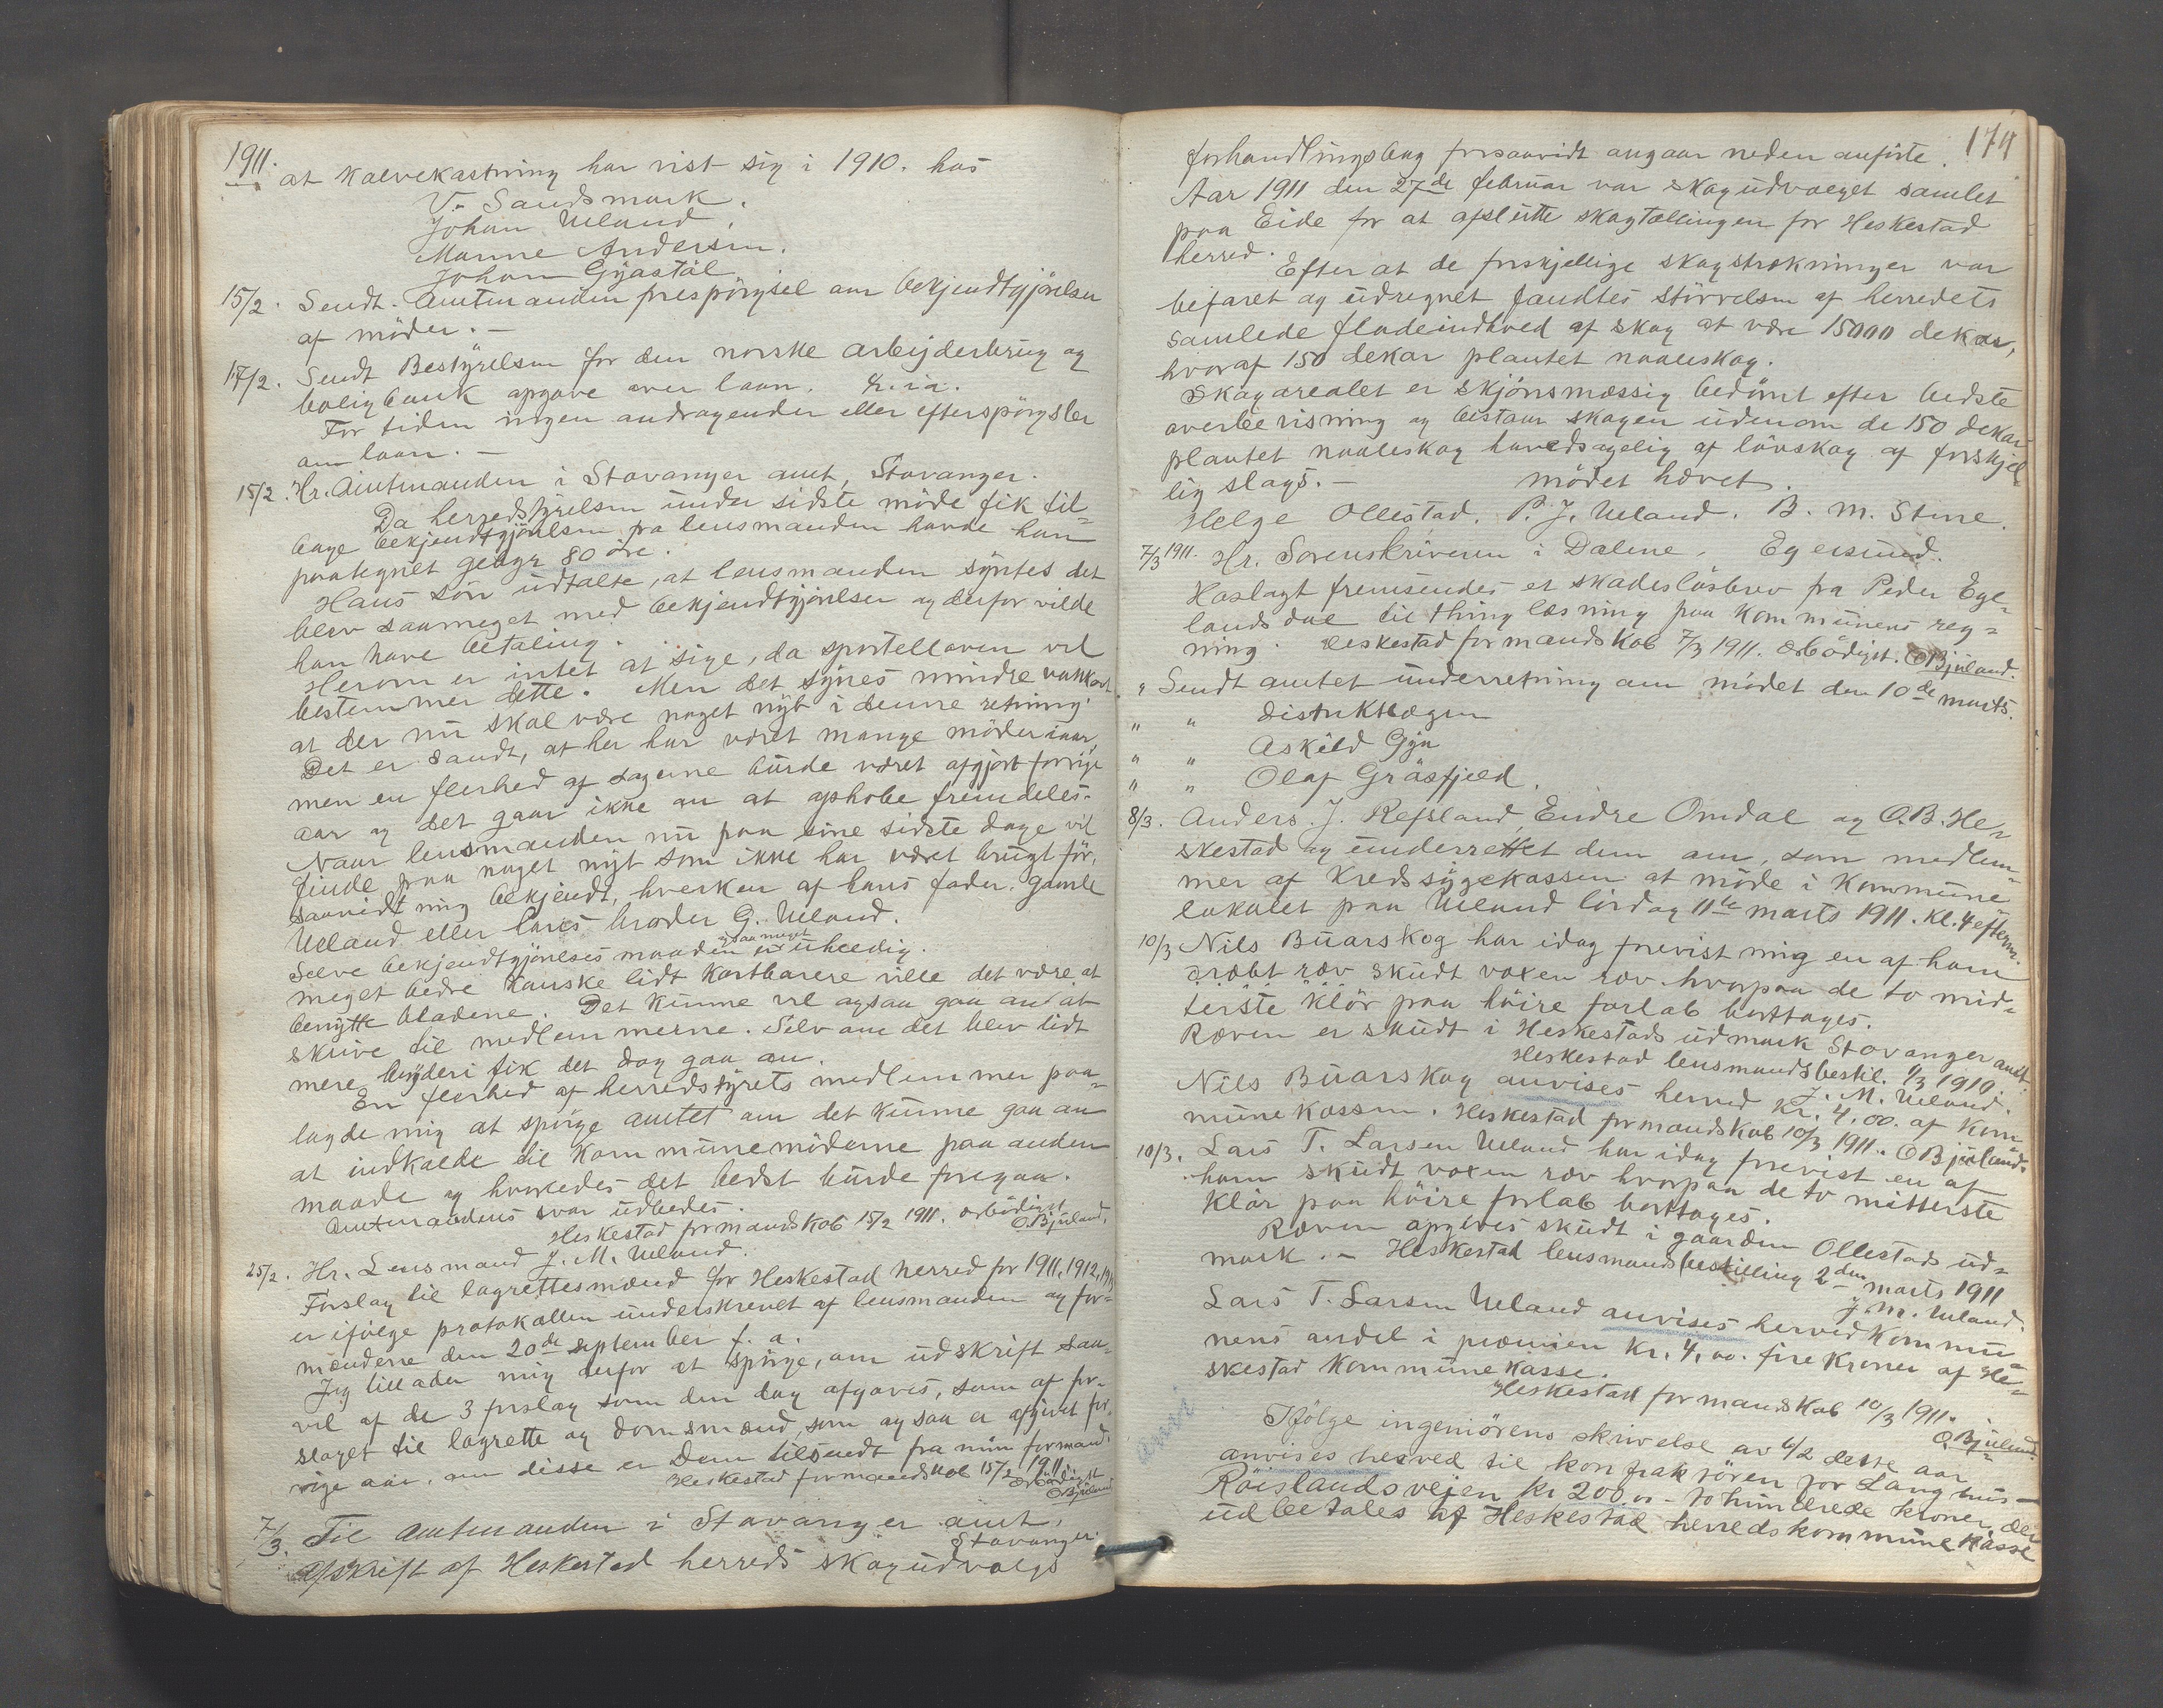 1911.
at Kalvekastning har vist sig i 1910. hos
V. Sandsmark.
Johan Ueland.
Manne Andersen.
Johan Gyastøl
15/2. Sendt Amtmanden forespörgsel om bekjendtgjörelser
af möder. —
17/2. Sendt Bestÿrelsen for den norske Arbeijderbrug og
boligbank opgave over laan.
For tiden ingen andragender eller efterspörgsler
om laan. —
15/2. Hr. Amtmanden i Stavanger amt, Stavanger.
Da herredstÿrelsen under sidste möde fik til-
bage bekjendtgjörelsen fra lensmanden havde han
paategnet gebyr 80 öre.
Hans sön udtalte, at lensmanden sÿntes det
blev saameget med bekjendtgjörelser og derfor vilde
han have betaling.
Herom er intet at sige, da sportelloven vel
bestemmer dette. Men det sÿnes mindre vakkert
at der nu skal være noget nÿt i denne retning.
Det er sandt, at her har været mange möder iaar,
men en flerhed af sagerne burde været afgjort forrige
aar og det gaar ikke an at ophobe fremdeles.
Naar lensmanden nu paa sine sidste dage vil
finde paa noget nÿt som ikke har været brugt för,
saavidt mig bekjendt, hverken af hans fader, gamle
Ueland eller hans broder G. Ueland.
Selve bekjendtgjörelses maaden er ogsaa meget uheldig.
meget bedre kanske lidt kostbarere ville det være at
benytte bladene. Det kunne vel ogsaa gaa an at
skrive til medlemmerne. Selv om det blev lidt
mere brÿderi fik det dog gaa an.
En flerhed af herredstÿrets medlemmer paa-
lagde mig at spörge amtet om det kunne gaa an
at indkalde til Kommunemöderne paa anden
maade og hvorledes det bedst burde foregaa.
Amtmandens svar udbedes.
Heskestad formandskab 15/2 1911. ærbödigst
O Bjuland.
25/2. Hr. Lensmand J. M. Ueland.
Forslag til lagrettesmænd for Heskestad herred for 1911, 1912, 1913
er ifölge protokollen underskrevet af lensmanden og for-
mændene den 20de september f. a.
Jeg tillader mig derfor at spörge, om udskrift saa-
vel af de 3 forslag som den dag afgaves, som af for-
slaget til lagrette og domsmænd, som ogsaa er afgivet for-
rige aar, om disse er Dem tilsendt fra min formand.
Heskestad formandskab 15/2 1911.
Ærbödigst
O Bjuland
7/3. Til Amtmanden i Stavanger amt,
Stavanger.
Afskrift af Heskestad herreds skogudvalgs
174
forhandlingsbog forsaavidt angaar neden anförte.
Aar 1911 den 27de februar var skogudvalget samlet
paa Eide for at afslutte skogtællingen for Heskestad
herred.
Efter at de forskjellige skogstrækninger var
befaret og udregnet fandtes störrelsen af herredets
samlede fladeindhold af skog at være 15000 dekar,
hvoraf 150 dekar plantet naaleskog.
Skogarealet er skjönsmæssig bedömt efter bedste
overbevisning og bestaar skogen udenom de 150 dekar
plantet naaleskog hovedsagelig af lövskog af forskjel-
lig slags. — mödet hævet.
Helge Ollestad. P. J. Ueland. B. M. Stene.
7/3 1911. Hr. Sorenskriveren i Dalene, Egersund.
Hoslagt fremsendes et skadeslösbrev fra Peder Ege-
landsdal til thinglæsning paa Kommunens reg-
ning. Heskestad formandskab 7/3 1911. ærbödigst. O Bjuland.
" Sendt amtet underretning om mödet den 10de marts.
" " Distriktlægen
" " Askild Gÿa
" " Olaf Gråsfjeld.
8/3. Anders. J. Refsland, Endre Omdal og O. B. He-
skestad og underrettet dem om, som medlem-
mer af Kredssÿgekassen at möde i Kommune
lokalet paa Ueland lördag 11te marts 1911. Kl. 4 efterm.
10/3 Nils Buarskog har idag forevist mig en af ham
dræbt ræv skudt voxen ræv hvorpaa de to mid-
terste klör paa höire forlab borttages.
Ræven er skudt i Heskestads udmark Stavanger amt.
Heskestad lensmandsbestil. 1/3 1910.
J. M. Ueland.
Nils Buarskog anvises herved Kr. 4.00. af Kom-
munekassen. Heskestad formandskab 10/3 1911. O Bjuland.
10/3. Lars T. Larsen Ueland har idag forevist en af
ham skudt voxen ræv hvorpaa de to mitterste
Klör paa höire forlab borttages.
Ræven opgives skudt i gaarden Ollestads ud-
mark. — Heskestad lensmandsbestilling 2den marts 1911
J. M. Ueland.
Lars T. Larsen Ueland anvises herved Kommu-
nens andel i præmien Kr. 4,00. fire Kroner af He-
skestad Kommunekasse.
Heskestad formandskab 10/3 1911.
O. Bjuland.
Ifölge ingeniörens skrivelse av 6/2 dette aar
anvises herved til kontraktören for Langhus-
Röislandsvejen kr 200.00 - tohundrede kroner, der
udbetales af Heskestad herredskommunekasse